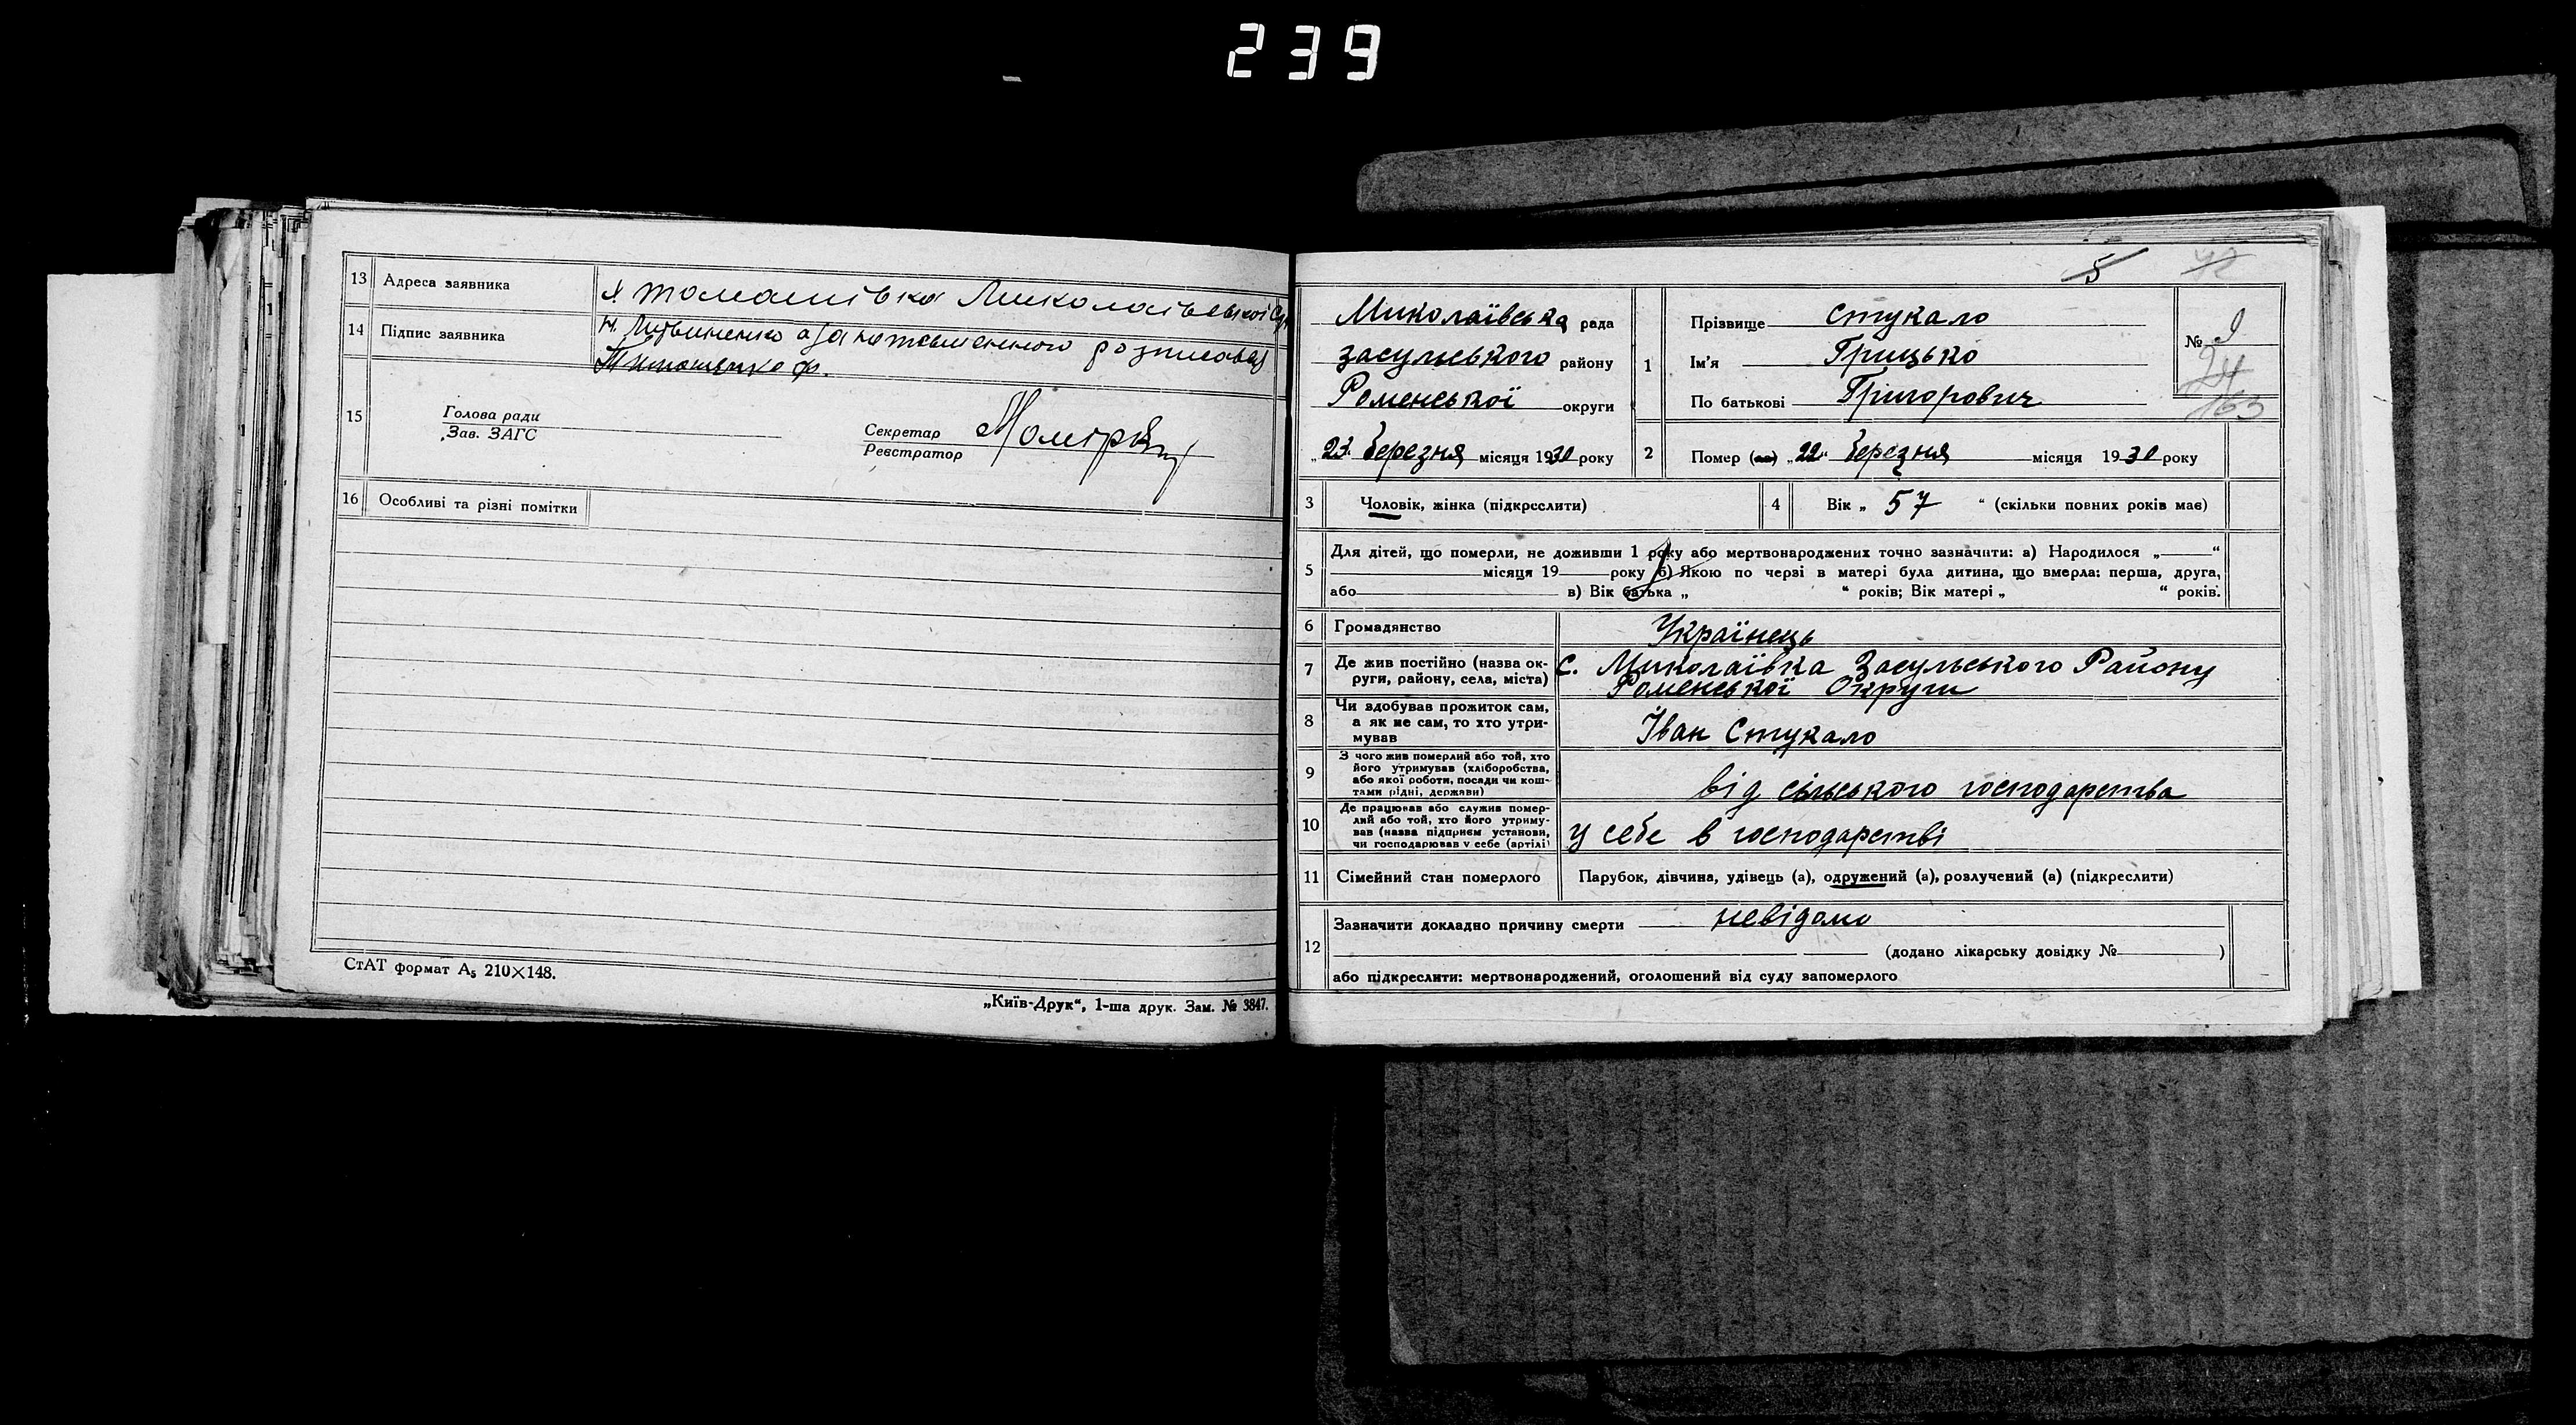 239
13 Адреса заявника х томашівка Миколаївської
14 Підпис заявника Н. Литвиненко а за неписьменного розписавсь
Тимошенко ф.
15 Голова ради
Зав. ЗАГС
Секретар
Реєстратор
16 Особливі та різні помітки
СтАТ формат А5 210×148.
„Київ-Друк“, 1-ша друк. Зам. № 3847.
5 42
Миколаївська рада
засульського району
Роменської округи
„23“ березня місяця 1930 року
1 Прізвище Стукало
Ім'я Грицько
По батькові Григорович
№ 9
24
163
2 Помер (ла) „22“ березня місяця 1930 року
3 Чоловік, жінка (підкреслити) 4 Вік „ 57 “ (скільки повних років має)
5 Для дітей, що померли, не доживши 1 року або мертвонароджених точно зазначити: а) Народилося „ “
місяця 19 року б) Якою по черзі в матері була дитина, що вмерла: перша, друга,
або в) Вік батька „ “ років; Вік матері „ “ років.
6 Громадянство Українець
7 Де жив постійно (назва ок-
руги, району, села, міста) С. Миколаївка Засульського Району
Роменської Округи
8 Чи здобував прожиток сам,
а як не сам, то хто утри-
мував Іван Стукало
9 З чого жив померлий або той, хто
його утримував (хліборобства,
або якої роботи, посади чи кош-
тами рідні, держави) від сільського господарства
10 Де працював або служив помер-
лий або той, хто його утриму-
вав (назва підприєм установи,
чи господарював у себе (артілі) у себе в господарстві
11 Сімейний стан померлого Парубок, дівчина, удівець (а), одружений (а), розлучений (а) (підкреслити)
12 Зазначити докладно причину смерти невідомо
(додано лікарську довідку № )
або підкреслити: мертвонароджений, оголошений від суду запомерлого